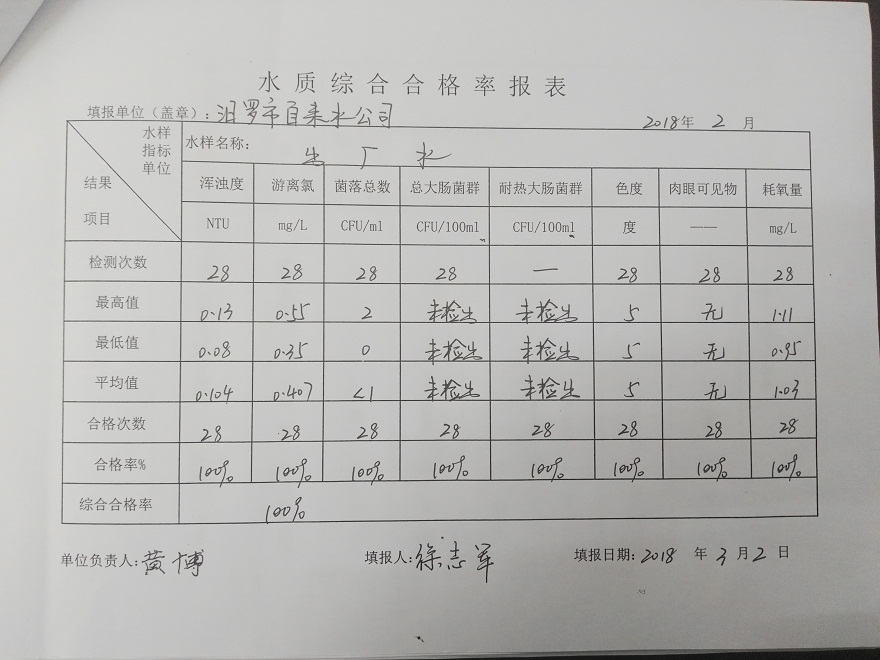 水质综合合格率报表
填报单位（盖章）：汨罗市自来水公司 2018年 2 月
水样 指标 单位 结果 项目
水样名称: 出厂水
浑浊度 游离氯 菌落总数 总大肠菌群 耐热大肠菌群 色度 肉眼可见物 耗氧量
NTU mg/L CFU/ml CFU/100ml CFU/100ml 度 —— mg/L
检测次数 28 28 28 28 — 28 28 28
最高值 0.13 0.55 2 未检出 未检出 5 无 1.11
最低值 0.08 0.35 0 未检出 未检出 5 无 0.95
平均值 0.104 0.407 <1 未检出 未检出 5 无 1.03
合格次数 28 28 28 28 28 28 28 28
合格率% 100% 100% 100% 100% 100% 100% 100% 100%
综合合格率 100%
单位负责人:黄博 填报人:徐志军 填报日期:2018 年 3 月 2 日